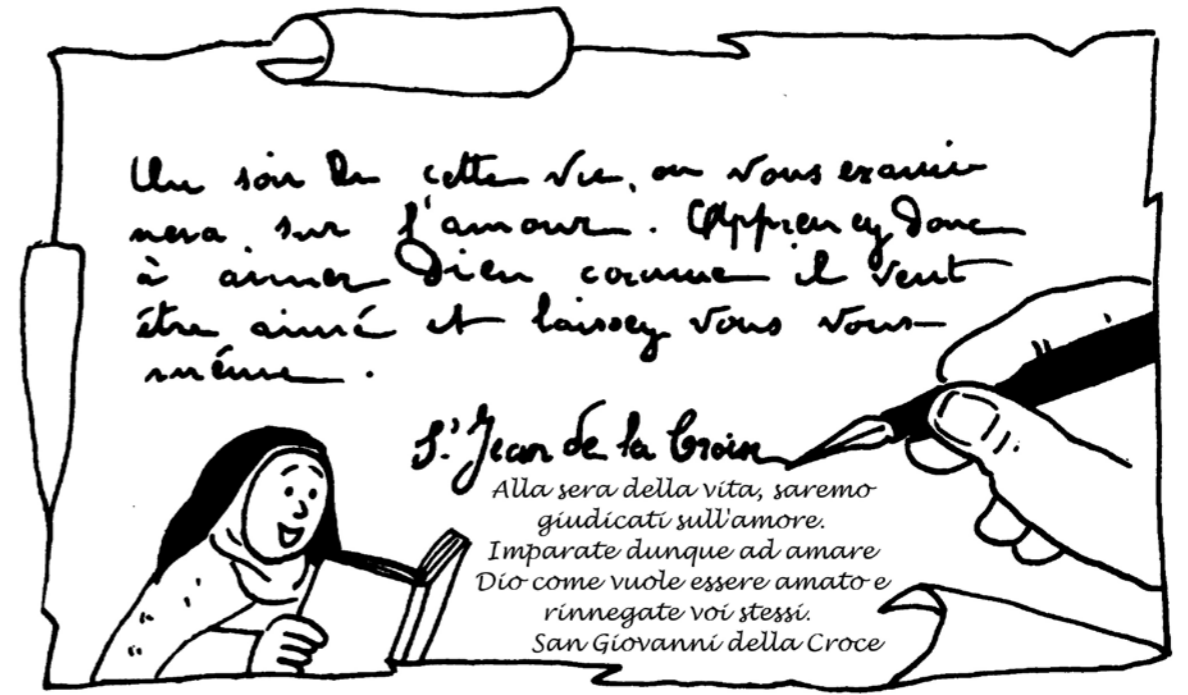 Un soir de cette vie, on vous exami
nera sur l'amour. Apprenez donc
à aimer Dieu comme il veut
être aimé et laissez vous vous-
même.
St Jean de la Croix
Alla sera della vita, saremo
giudicati sull'amore.
Imparate dunque ad amare
Dio come vuole essere amato e
rinnegate voi stessi.
San Giovanni della Croce